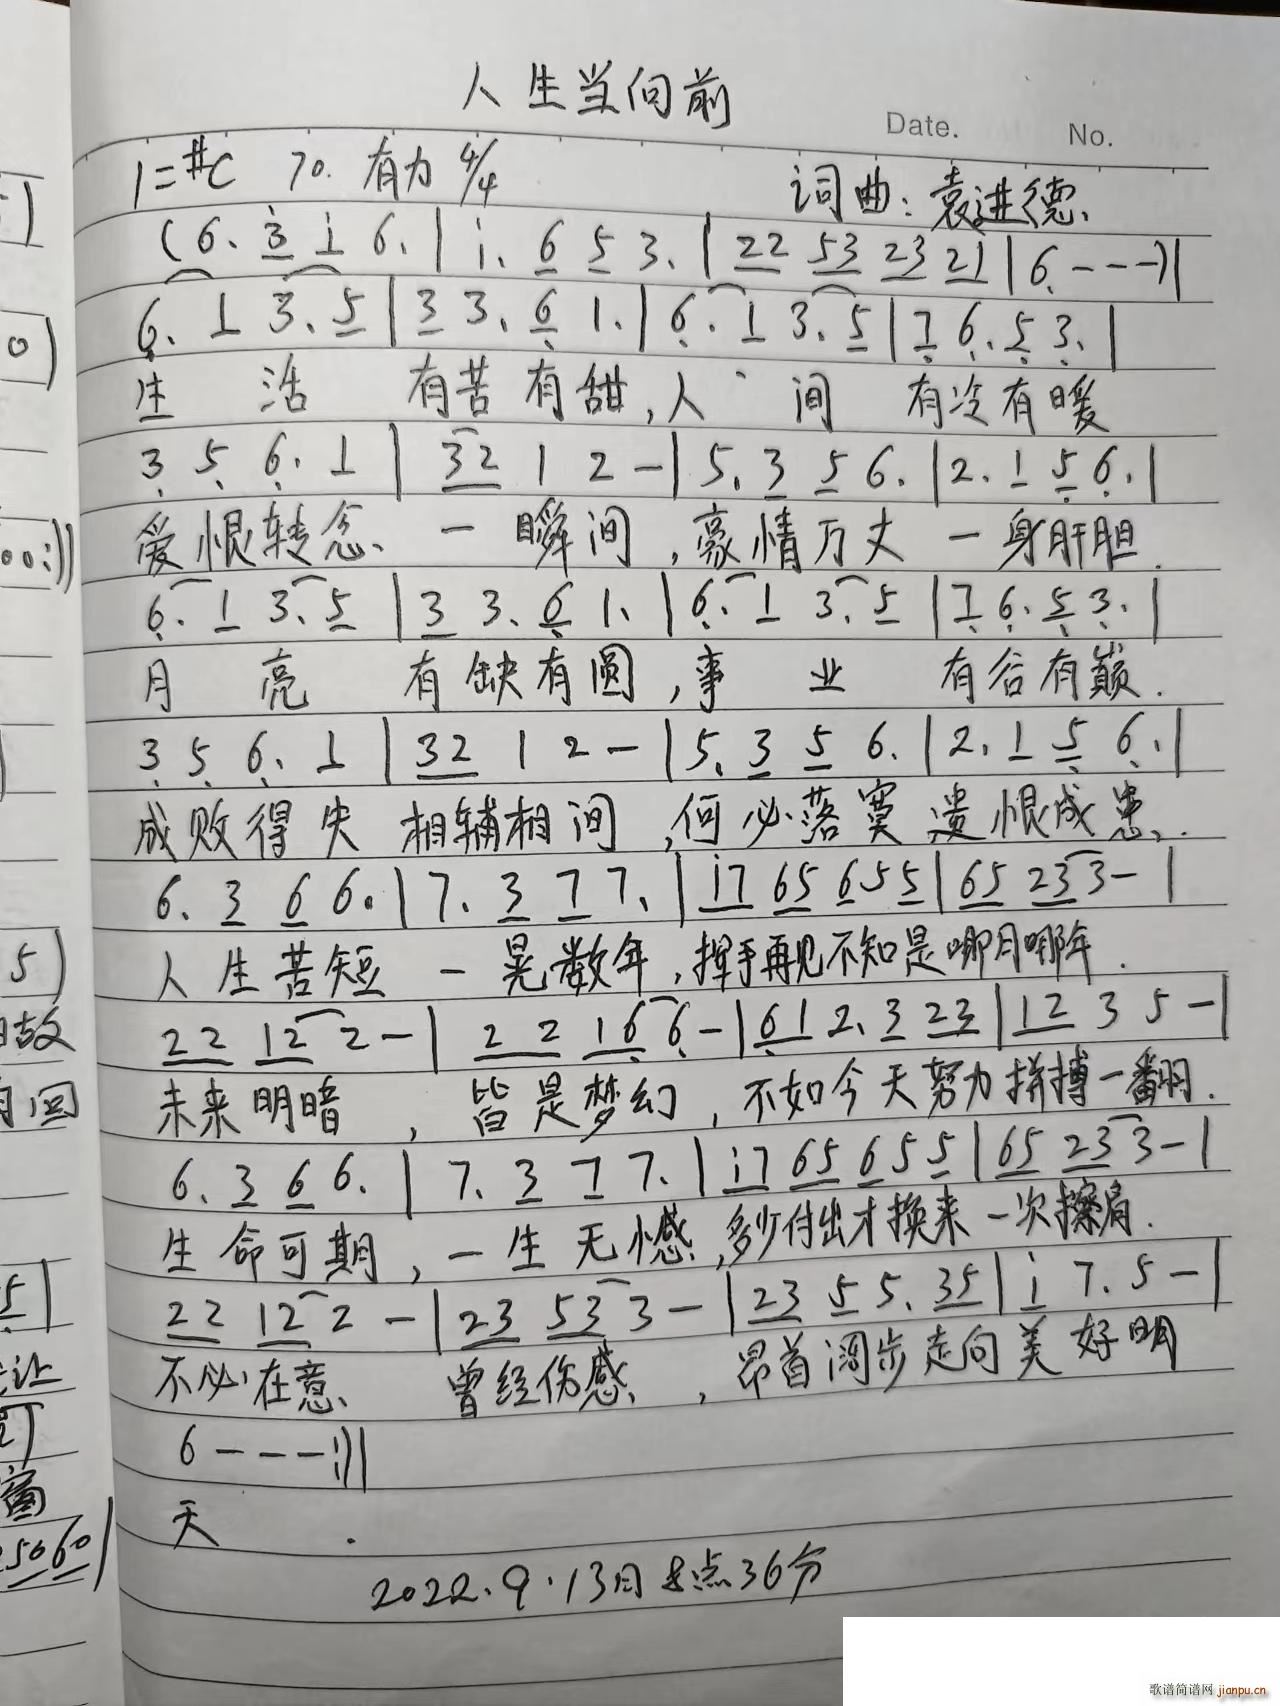 人生当向前
Date. No.
1=#C 70. 有力 4/4 词曲:袁进德.
(6. 3 i 6. | i. 6 5 3. | 22 53 23 21 | 6 - - -) |
6. 1 3. 5 | 3 3. 6 1. | 6. 1 3. 5 | 7 6. 5 3. |
生 活 有苦有甜,人 间 有冷有暖
3 5 6. 1 | 32 1 2 - | 5. 3 5 6. | 2. 1 5 6. |
爱恨转念、一瞬间,豪情万丈一身肝胆.
6. 1 3. 5 | 3 3. 6 1. | 6. 1 3. 5 | 7 6. 5 3. |
月 亮 有缺有圆,事 业 有谷有巅.
3 5 6. 1 | 32 1 2 - | 5. 3 5 6. | 2. 1 5 6. |
成败得失 相辅相间,何必落寞 遗恨成患.
6. 3 6 6. | 7. 3 7 7. | i7 65 655 | 65 23 3 - |
人生苦短 一晃数年,挥手再见不知是哪月哪年.
22 12 2 - | 22 16 6 - | 61 2. 3 23 | 12 3 5 - |
未来明暗,皆是梦幻,不如今天努力拼搏一翻.
6. 3 6 6. | 7. 3 7 7. | i7 65 655 | 65 23 3 - |
生命可期,一生无憾,多少付出才换来一次擦肩.
22 12 2 - | 23 53 3 - | 23 5 5. 35 | i 7. 5 - |
不必在意、曾经伤感、,昂首阔步走向美好明
6 - - - :)||
天.
2022.9.13日 点36分
0)
00:)
5)
故
5|
让
窗
5060|
歌谱简谱网 jianpu.cn